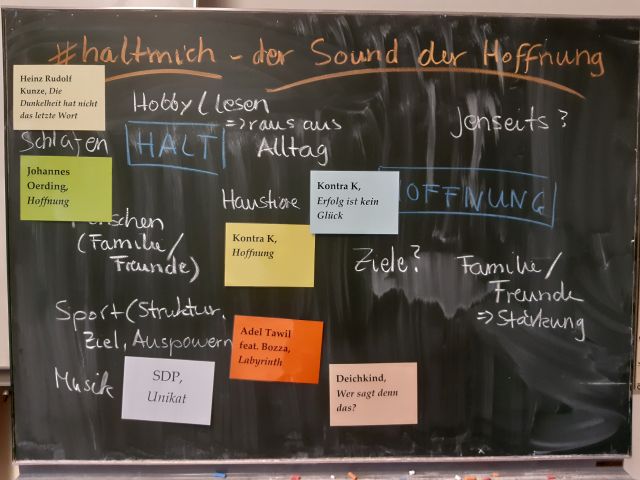 #haltmich - der Sound der Hoffnung
Heinz Rudolf
Kunze, Die
Dunkelheit hat nicht
das letzte Wort
Hobby (lesen
=> raus aus
Alltag
Jenseits?
Schlafen
HALT
Johannes
Oerding,
Hoffnung
Haustiere
Kontra K,
Erfolg ist kein
Glück
HOFFNUNG
(Familie/
Freunde)
Kontra K,
Hoffnung
Ziele?
Familie/
Freunde
=> Stärkung
Sport (Struktur,
Ziel, Auspowern
Adel Tawil
feat. Bozza,
Labyrinth
Musik
SDP,
Unikat
Deichkind,
Wer sagt denn
das?